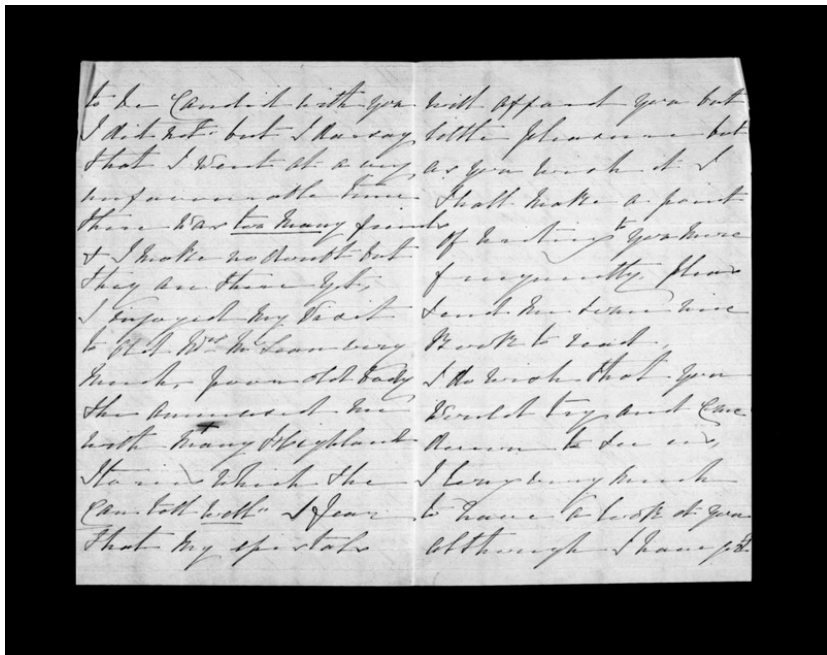 to be Candid with you
I did not but I daresay
that I went at a very
unfavourable time
there was too many friends
& I make no doubt but
they are there yet,
I enjoyed my visit
to Old Mrs McLean very
much, poor old body
she amused me
with many Highland
Stories which she
Can tell well I fear
that my epistols
will afford you but
little pleasure but
as you wish it I
shall make a point
of writing to you more
frequently, please
send me some nice
Book to read,
I do wish that you
would try and Come
down to see us,
I long very much
to have a look at you
although I have